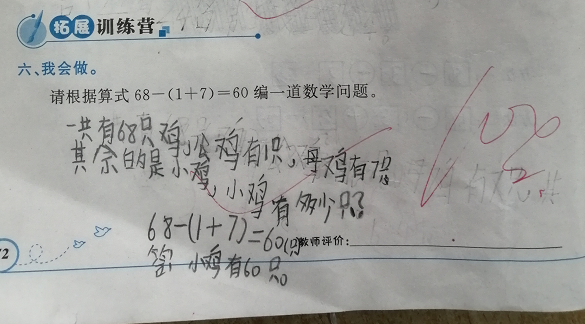 拓展训练营
六、我会做。
请根据算式 68－(1＋7)＝60 编一道数学问题。
一共有68只鸡,公鸡有1只,母鸡有7只
其余的是小鸡,小鸡有多少只?
68-(1+7)=60(只)
答:小鸡有60只。
教师评价:
72
100